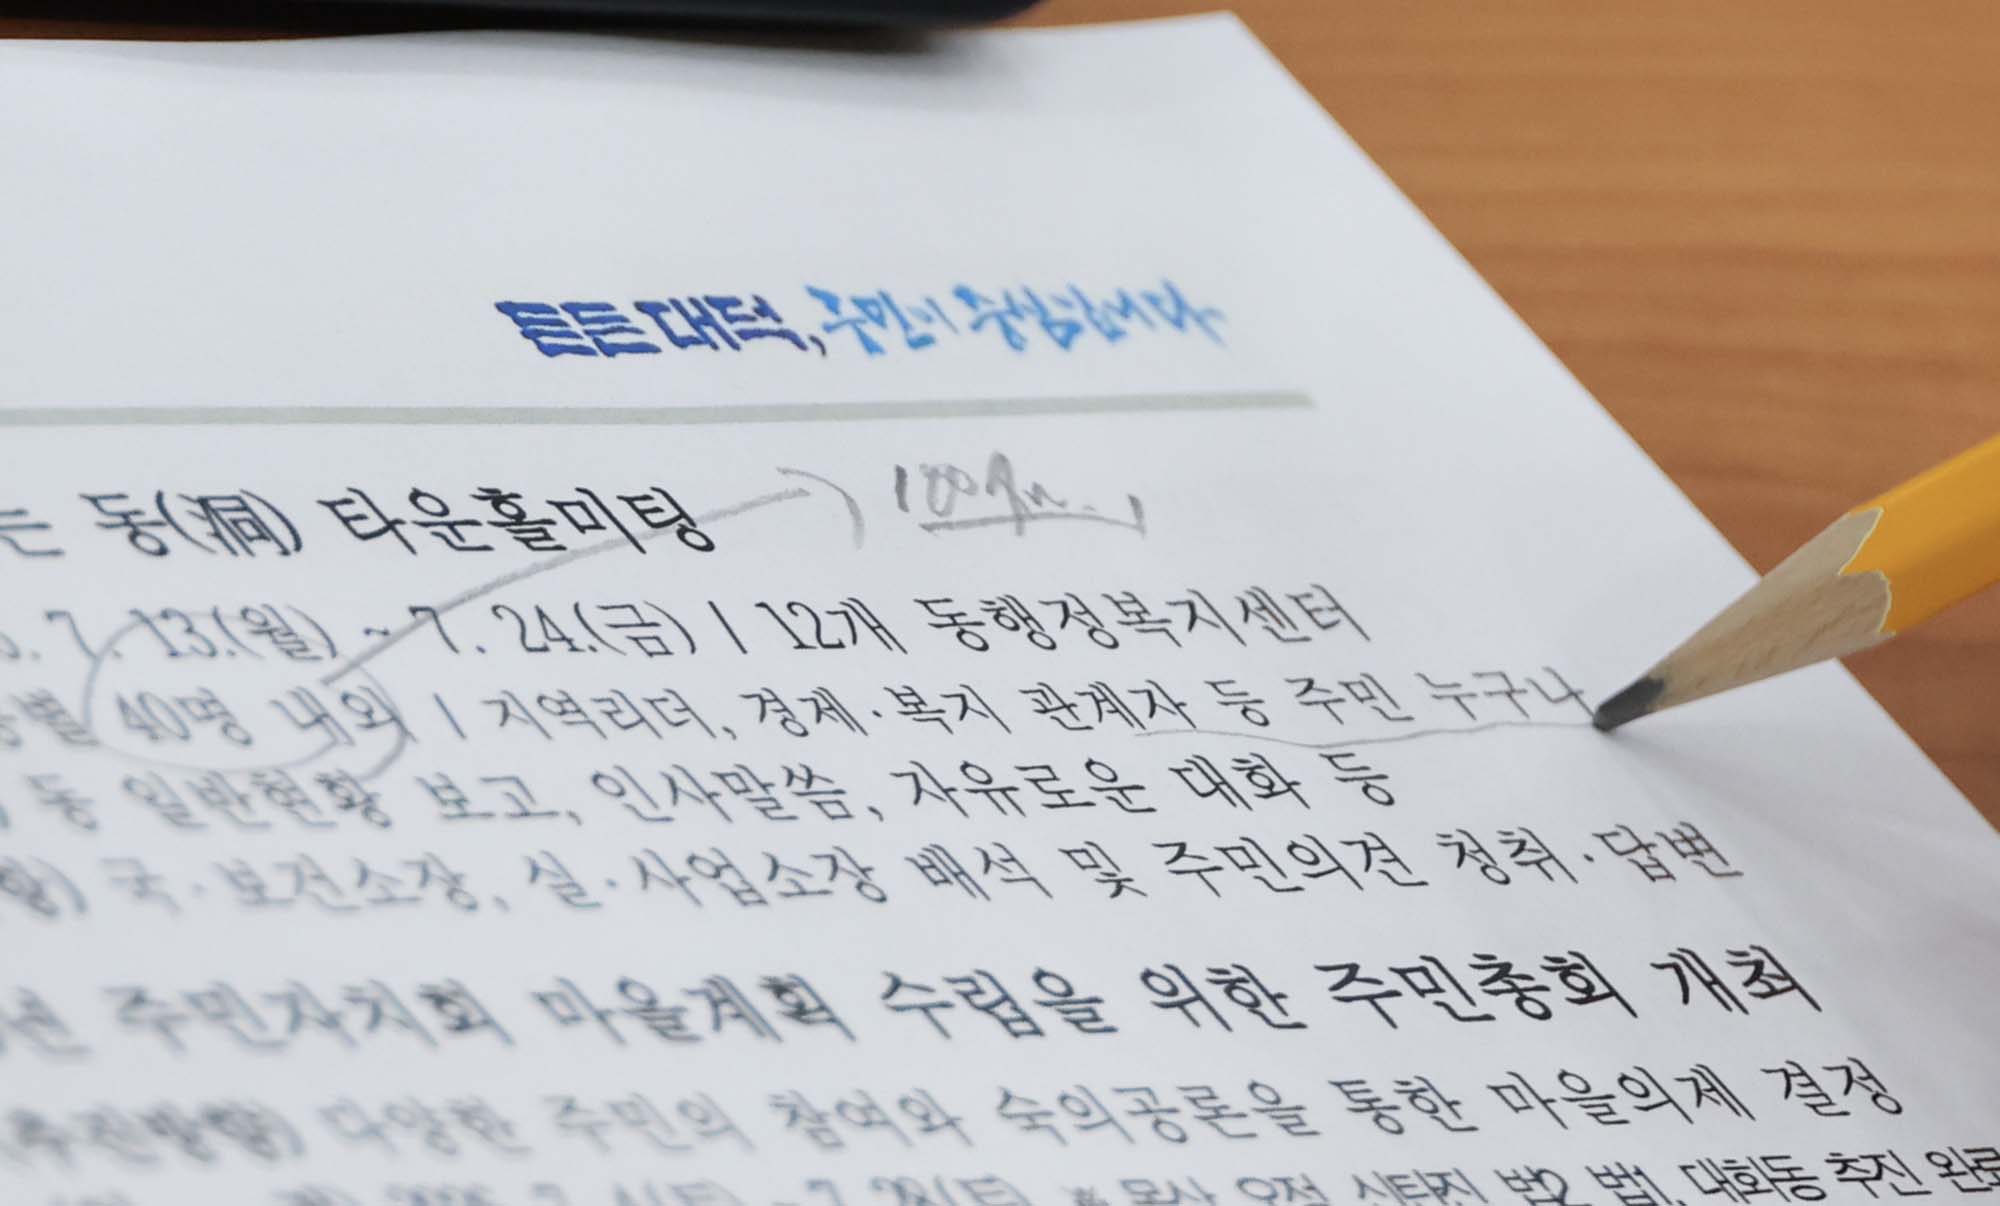 튼튼대덕, 주민이 중심입니다
는 동(洞) 타운홀미팅
7. 13.(월) ~ 7. 24.(금) | 12개 동행정복지센터
40명 내외 | 지역리더, 경제·복지 관계자 등 주민 누구나
동 일반현황 보고, 인사말씀, 자유로운 대화 등
국·보건소장, 실·사업소장 배석 및 주민의견 청취·답변
주민자치회 마을계획 수립을 위한 주민총회 개최
(추진방향) 다양한 주민의 참여와 숙의공론을 통한 마을의제 결정
대화동 추진 완료